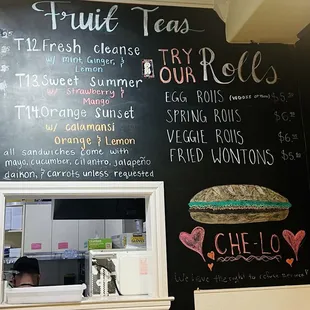 Fruit Teas
T12 Fresh cleanse
w/ mint, Ginger, &
Lemon
T13 Sweet Summer
w/ strawberry &
Mango
T14 Orange Sunset
w/ calamansi
Orange & Lemon
all sandwiches come with
mayo, cucumber, cilantro, jalapeño
daikon, & carrots unless requested
TRY
OUR Rolls
EGG ROLLS
SPRING ROLLS
VEGGIE ROLLS
FRIED WONTONS
CHE-LO